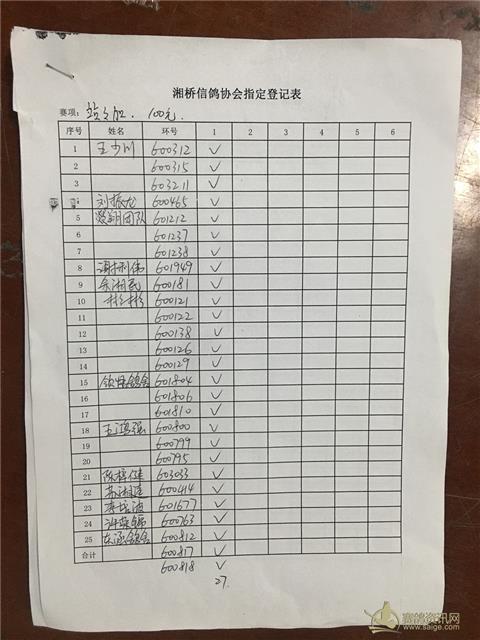 湘桥信鸽协会指定登记表
赛项: 站站加. 100元.
序号 姓名 环号 1 2 3 4 5 6
1 王少川 600312 ✓
2 600315 ✓
3 603211 ✓
刘振龙 600465 ✓
5 翔团队 601212 ✓
6 601237 ✓
7 601238 ✓
8 谢利伟 601949 ✓
9 余湘武 600181 ✓
10 彬彬 600121 ✓
11 600122 ✓
12 600138 ✓
13 600126 ✓
14 600129 ✓
15 鸽舍 601804 ✓
16 601806 ✓
17 601810 ✓
18 王鸿强 600800 ✓
19 600799 ✓
20 600795 ✓
21 陈梓健 603033 ✓
22 苏湘 600414 ✓
23 李 601677 ✓
24 许 600763 ✓
25 东涵鸽舍 600812 ✓
合计 600817 ✓
600818 ✓
27.
赛鸽资讯网
www.saige.com